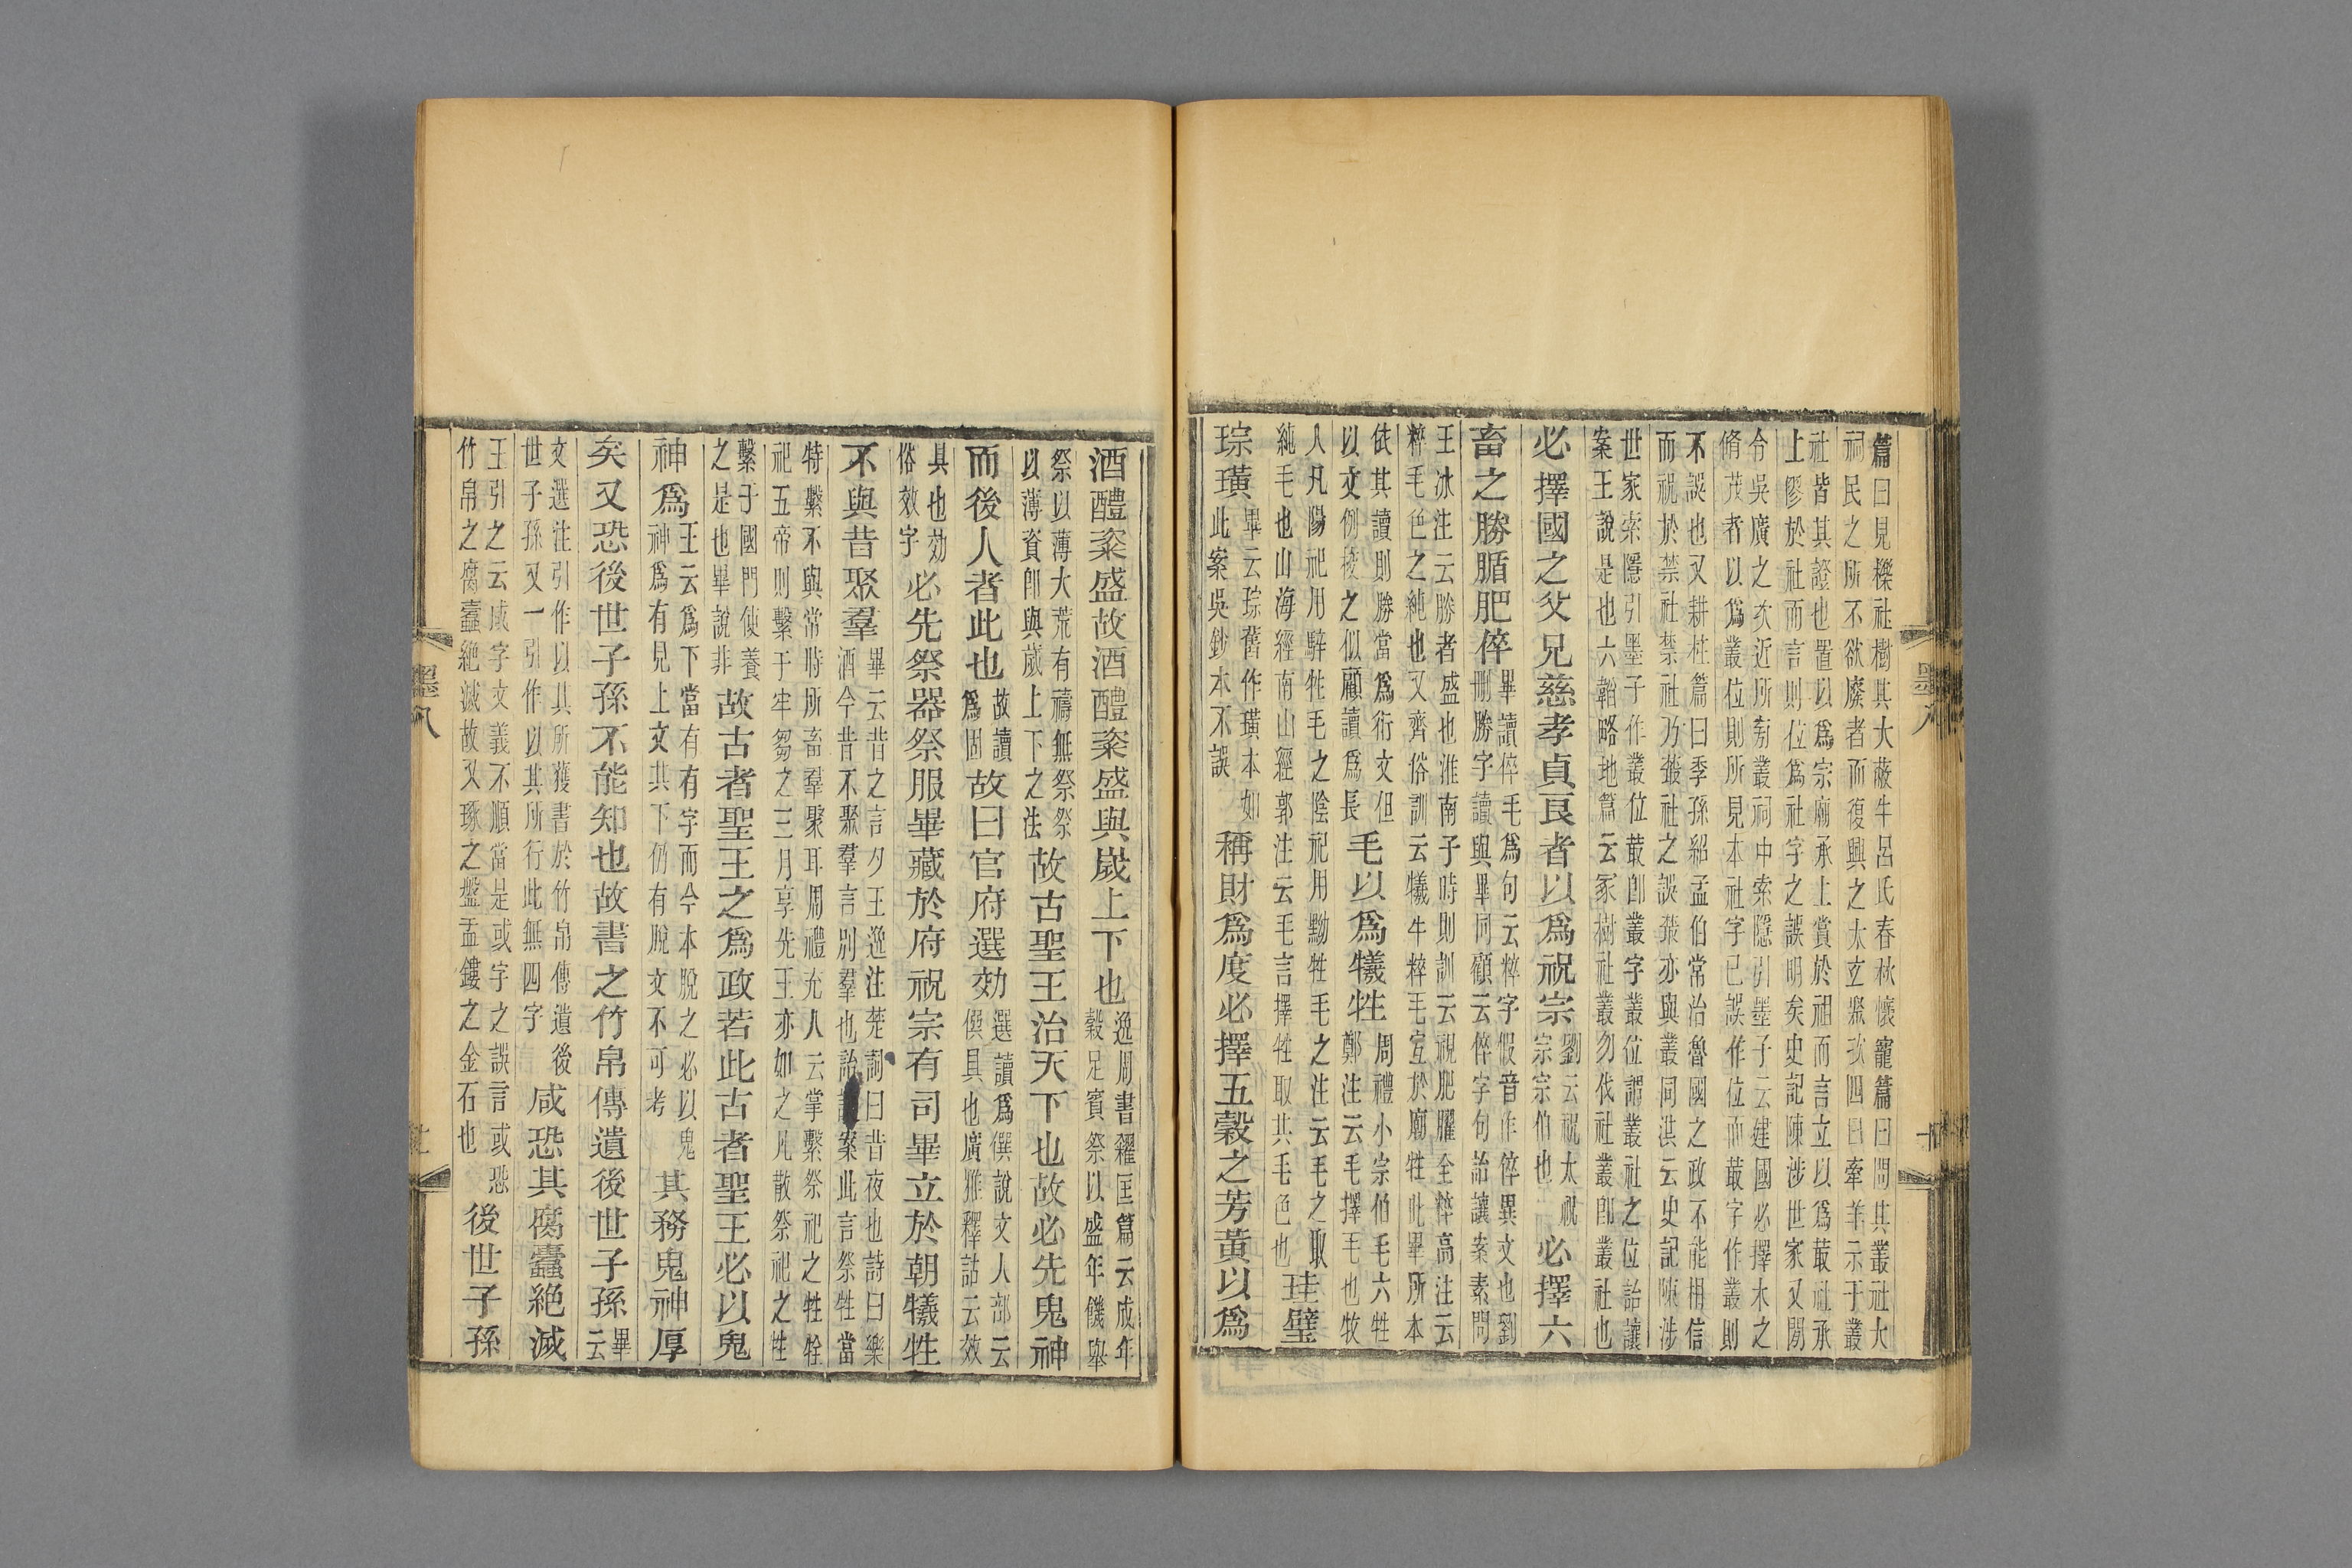 篇曰見櫟社樹其大蔽牛呂氏春秋懷寵篇曰問其叢社大
祠民之所不欲廢者而復興之太玄聚次四曰牽羊示于叢
社皆其證也置以爲宗廟承上賞於祖而言立以爲菆社承
上僇於社而言則位爲社字之誤明矣史記陳涉世家又閒
令吳廣之次近所旁叢祠中索隱引墨子云建國必擇木之
脩茂者以爲叢位則所見本社字已誤作位而菆字作叢則
不誤也又耕柱篇曰季孫紹孟伯常治魯國之政不能相信
而祝於禁社禁社乃菆社之誤菆亦與叢同洪云史記陳涉
世家索隱引墨子作叢位菆卽叢字叢位謂叢社之位詒讓
案王說是也六韜略地篇云冢樹社叢勿伐社叢卽叢社也
必擇國之父兄慈孝貞良者以爲祝宗劉云祝太祝宗宗伯也必擇六
畜之勝腯肥倅畢讀倅毛爲句云粹字假音作倅異文也劉刪勝字讀與畢同顧云倅字句詒讓案素問
王冰注云勝者盛也淮南子時則訓云視肥臞全粹高注云
粹毛色之純也又齊俗訓云犧牛粹毛宜於廟牲此畢所本
依其讀則勝當爲衍文但以文例校之似顧讀爲長毛以爲犧牲周禮小宗伯毛六牲鄭注云毛擇毛也牧
人凡陽祀用騂牲毛之陰祀用黝牲毛之注云毛之取純毛也山海經南山經郭注云毛言擇牲取其毛色也珪璧
琮璜畢云琮舊作璜本如此案吳鈔本不誤稱財爲度必擇五穀之芳黃以爲
墨八
十
酒醴粢盛故酒醴粢盛與歲上下也逸周書糴匡篇云成年穀足賓祭以盛年饑舉
祭以薄大荒有禱無祭祭以薄資卽與歲上下之法故古聖王治天下也故必先鬼神
而後人者此也故讀爲固故曰官府選効選讀爲僎說文人部云僎具也廣雅釋詁云效
具也効俗效字必先祭器祭服畢藏於府祝宗有司畢立於朝犧牲
不與昔聚羣畢云昔之言夕王逸注楚詞曰昔夜也詩曰樂酒今昔不聚羣言別羣也詒讓案此言祭牲當
特繫不與常時所畜羣聚耳周禮充人云掌繫祭祀之牲牷
祀五帝則繫于牢芻之三月享先王亦如之凡散祭祀之牲
繫于國門使養之是也畢說非故古者聖王之爲政若此古者聖王必以鬼
神爲王云爲下當有有字而今本脫之必以鬼神爲有見上文其下仍有脫文不可考其務鬼神厚
矣又恐後世子孫不能知也故書之竹帛傳遺後世子孫畢云
文選注引作以其所獲書於竹帛傳遺後世子孫又一引作以其所行此無四字咸恐其腐蠹絕滅
王引之云咸字文義不順當是或字之誤言或恐竹帛之腐蠹絕滅故又琢之盤盂鏤之金石也後世子孫
墨八